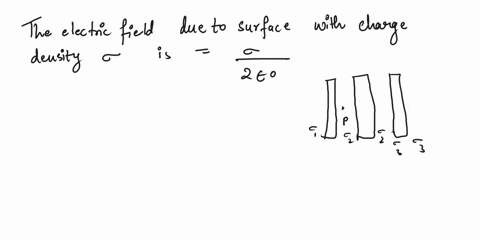 The electric field due to surface with charge
density σ is = σ
2 ε0
P
σ1 σ2 σ2 σ3 σ3